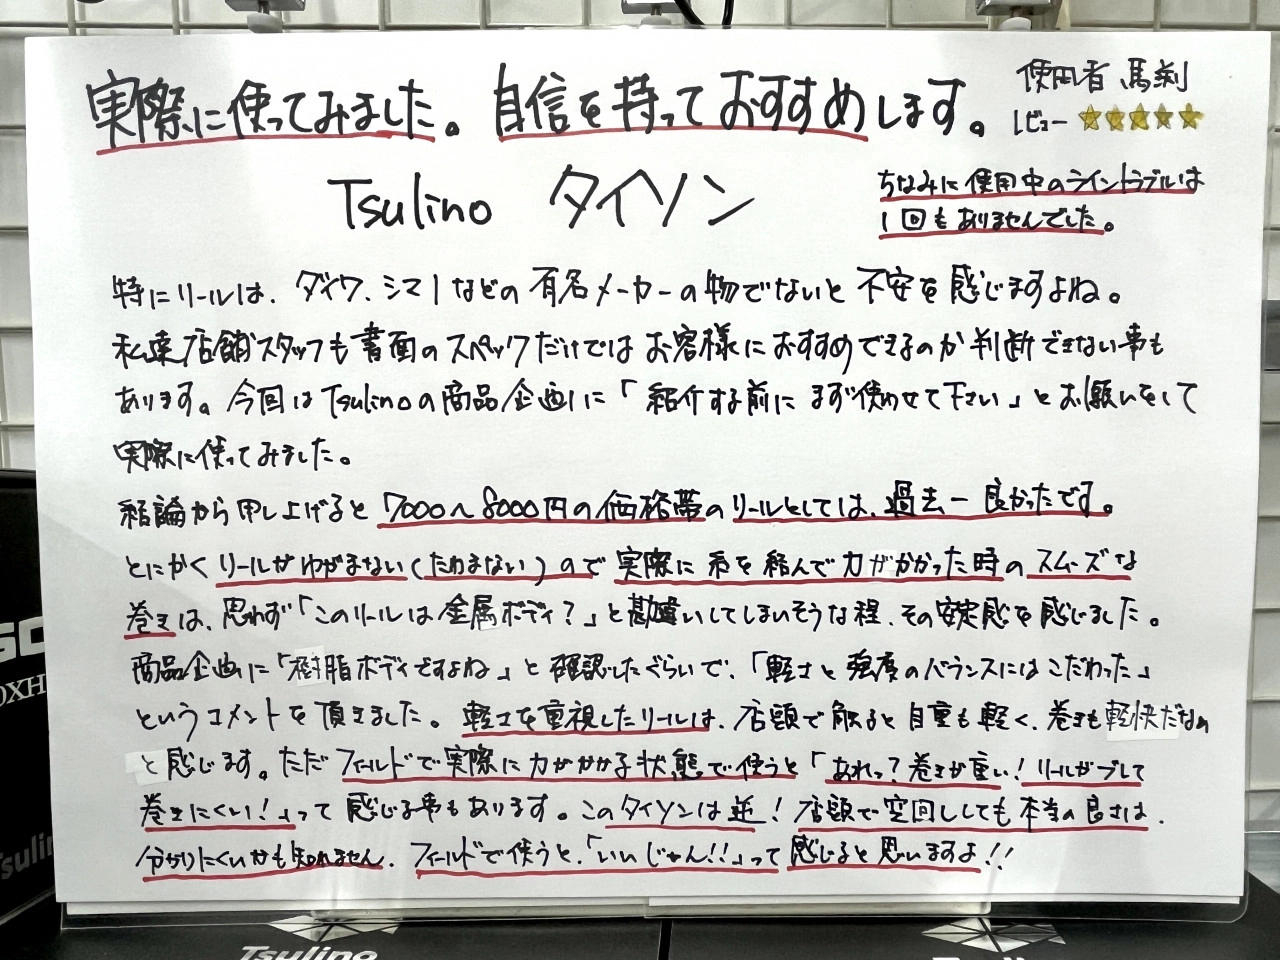 実際に使ってみました。自信を持っておすすめします。
使用者 馬渕
レビュー ★★★★★
Tsulino タイソン
ちなみに使用中のライントラブルは
1回もありませんでした。
特にリールは、ダイワ、シマノなどの有名メーカーの物でないと不安を感じますよね。
私達店舗スタッフも書面のスペックだけではお客様におすすめできるのか判断できない事も
あります。今回はTsulinoの商品企画に「紹介する前にまず使わせて下さい」とお願いをして
実際に使ってみました。
結論から申し上げると7000〜8000円の価格帯のリールとしては、過去一良かったです。
とにかくリールがゆがまない(たわまない)ので実際に糸を結んで力がかかった時のスムーズな
巻きは、思わず「このリールは金属ボディ?」と勘違いしてしまいそうな程、その安定感を感じました。
商品企画に「樹脂ボディですよね」と確認したぐらいで、「軽さと強度のバランスにはこだわった」
というコメントを頂きました。軽さを重視したリールは、店頭で触ると自重も軽く、巻きも軽快だなぁ
と感じます。ただフィールドで実際に力がかかる状態で使うと「あれっ?巻きが重い!リールがブレて
巻きにくい!」って感じる事もあります。このタイソンは逆!店頭で空回ししても本当の良さは、
分かりにくいかも知れません。フィールドで使うと、「いいじゃん!!」って感じると思いますよ!!
Tsulino